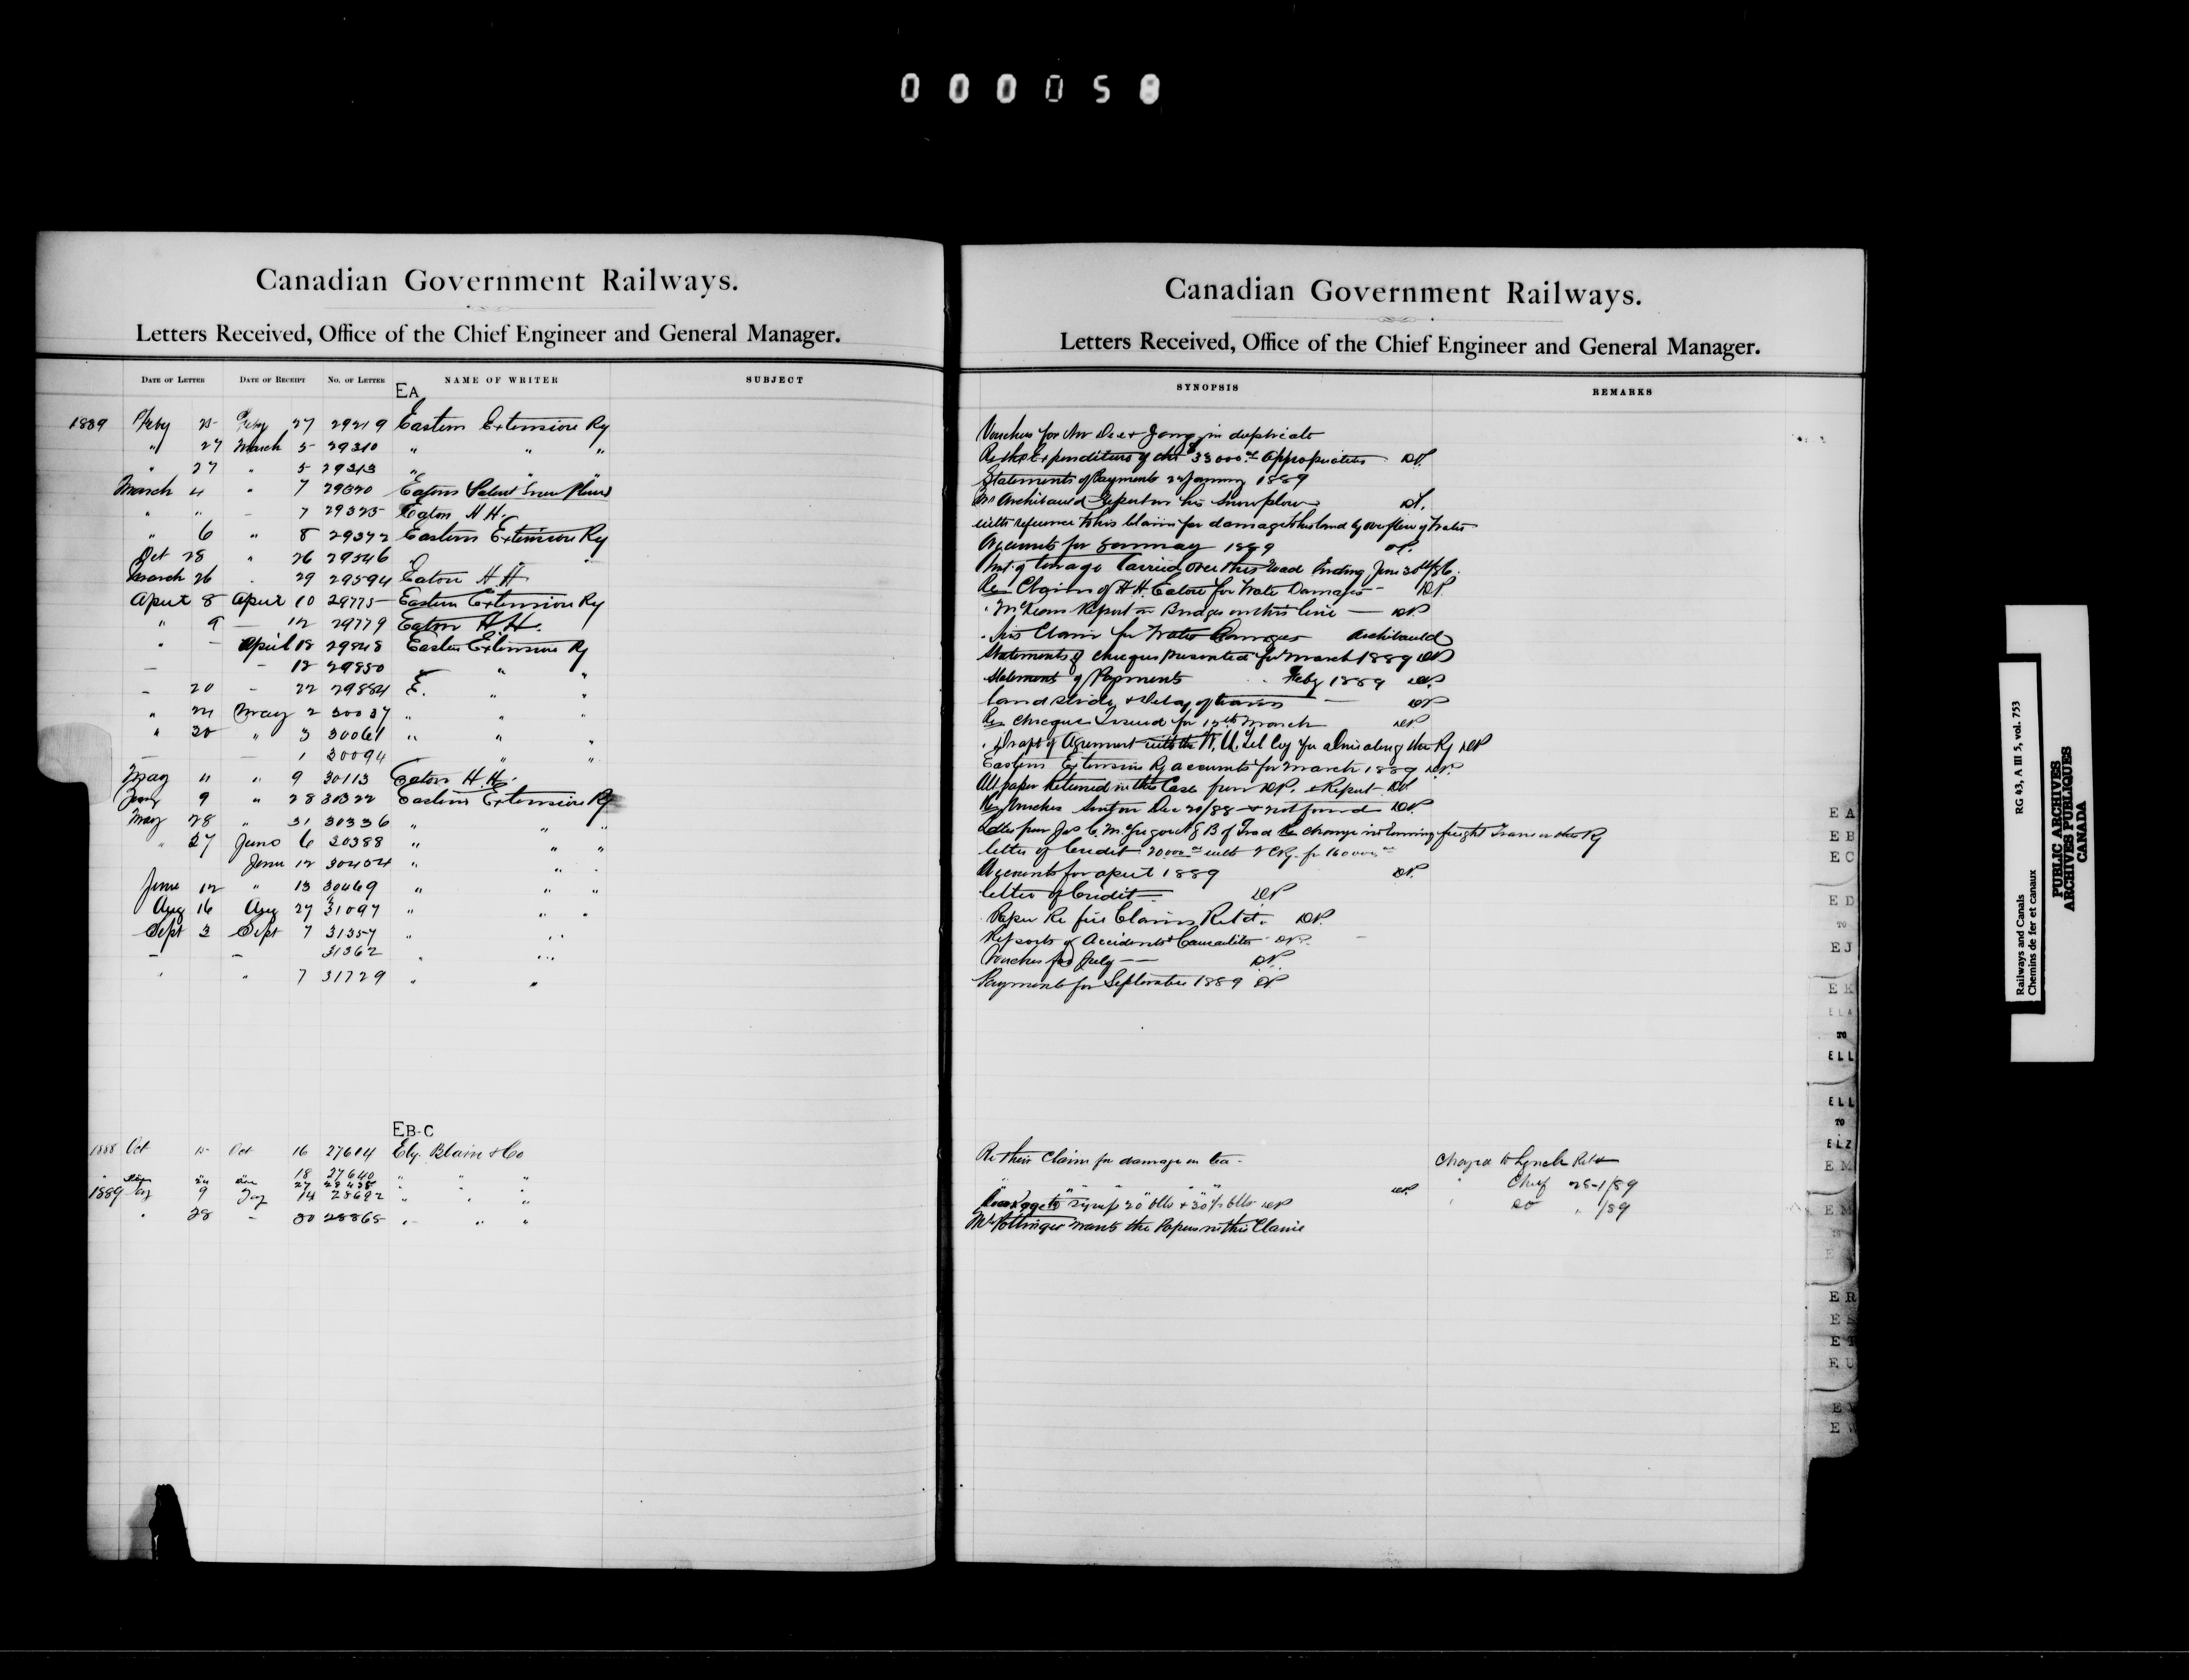 000058
Canadian Government Railways.
Letters Received, Office of the Chief Engineer and General Manager.
DATE OF LETTER DATE OF RECEIPT No. OF LETTER NAME OF WRITER SUBJECT
EA
1889 Feby 25 Feby 27 29219 Eastern Extension Ry
" 27 March 5 29310 " " "
" 27 " 5 29313 " " "
March 4 " 7 29320 Eatons Patent Snow Plow
" " - 7 29325 Eaton H H.
" 6 " 8 29372 Eastern Extension Ry
Oct 28 " 26 29546 " "
March 26 . 29 29594 Eaton H H
April 8 April 10 29775 Eastern Extension Ry
" 9 — 12 29779 Eaton H. H.
" - April 18 29848 Eastern Extension Ry
— - 12 29850 " "
- 20 - 22 29884 E. " "
" 24 May 2 30037 " " "
" 30 " 3 30061 " " "
— — 1 30094 " "
May " " 9 30113 Eaton H. H.
9 " 28 30322 Eastern Extension Ry
May 28 " 31 30336 " " "
" 27 June 6 30388 " " "
June 12 30404 " " "
June 12 " 13 30469 " " "
Aug 16 Aug 27 31097 " " "
Sept 3 Sept 7 31357 " "
— — 31362 " "
" " 7 31729 " "
EB-C
1888 Oct 15 Oct 16 27614 Ely Blain & Co
18 27640 " " "
27 28438
1889 9 14 28692 " " "
" 28 - 30 28865 " " "
Canadian Government Railways.
Letters Received, Office of the Chief Engineer and General Manager.
SYNOPSIS REMARKS
Vouchers for Nov Dec & Jany in duplicate
Re the Expenditure of the 33000.00 Appropriation DP.
Statements of Payments January 1889
Mr Archibauld Report on his Snow plow
with reference to his Claim for damage to his land by overflow of Water
Accounts for January 1889
of tonage Carried over this Road Ending June 30th/86.
Re Claim of H H. Eaton for Water Damages - DP.
" McLeans Report on Bridges on this line — DP
. his Claim for Water Damages Archibauld
Statements of cheques presented for March 1889 DP
Statement of Payments " Feby 1889 DP
land slide & Delay of trains — DP
Re Cheque Issued for March DP
. Draft of Agreement with the W. U. Tel Coy for a line along the Ry DP
Eastern Extension Ry accounts for March 1889 DP.
All paper Returned in this Case from DP. & Report DP
Re Voucher Sent on Dec 20/88 & not found DP
Letter from Jas C. McGregor of B of Trad Re change in running freight Trains on the Ry
letter of Credit 20000.00 with I C Ry. for 160000.00
Accounts for april 1889 DP.
letter of Credit — DP
Paper Re fire Claims Retd. DP.
Reports of Accidents & Casualities DP. -
Vouchers for July — DP.
Payments for September 1889 DP
Re their Claim for damage on tea - Charged to Lynch Retd
" " " " DP " Chief 28-1/89
syrup 20 blls & 30 1/2 blls DP " DO " 1/89
Mr Pottinger wants the Papers in this Claim
E A
E B
E C
E D
TO
E J
E K
E L A
TO
E L L
E L L
TO
E L Z
E M
E M
E R
E S
E T
E U
E V
E W
Railways and Canals RG 43, A III 5, vol. 753
Chemins de fer et canaux
PUBLIC ARCHIVES
ARCHIVES PUBLIQUES
CANADA